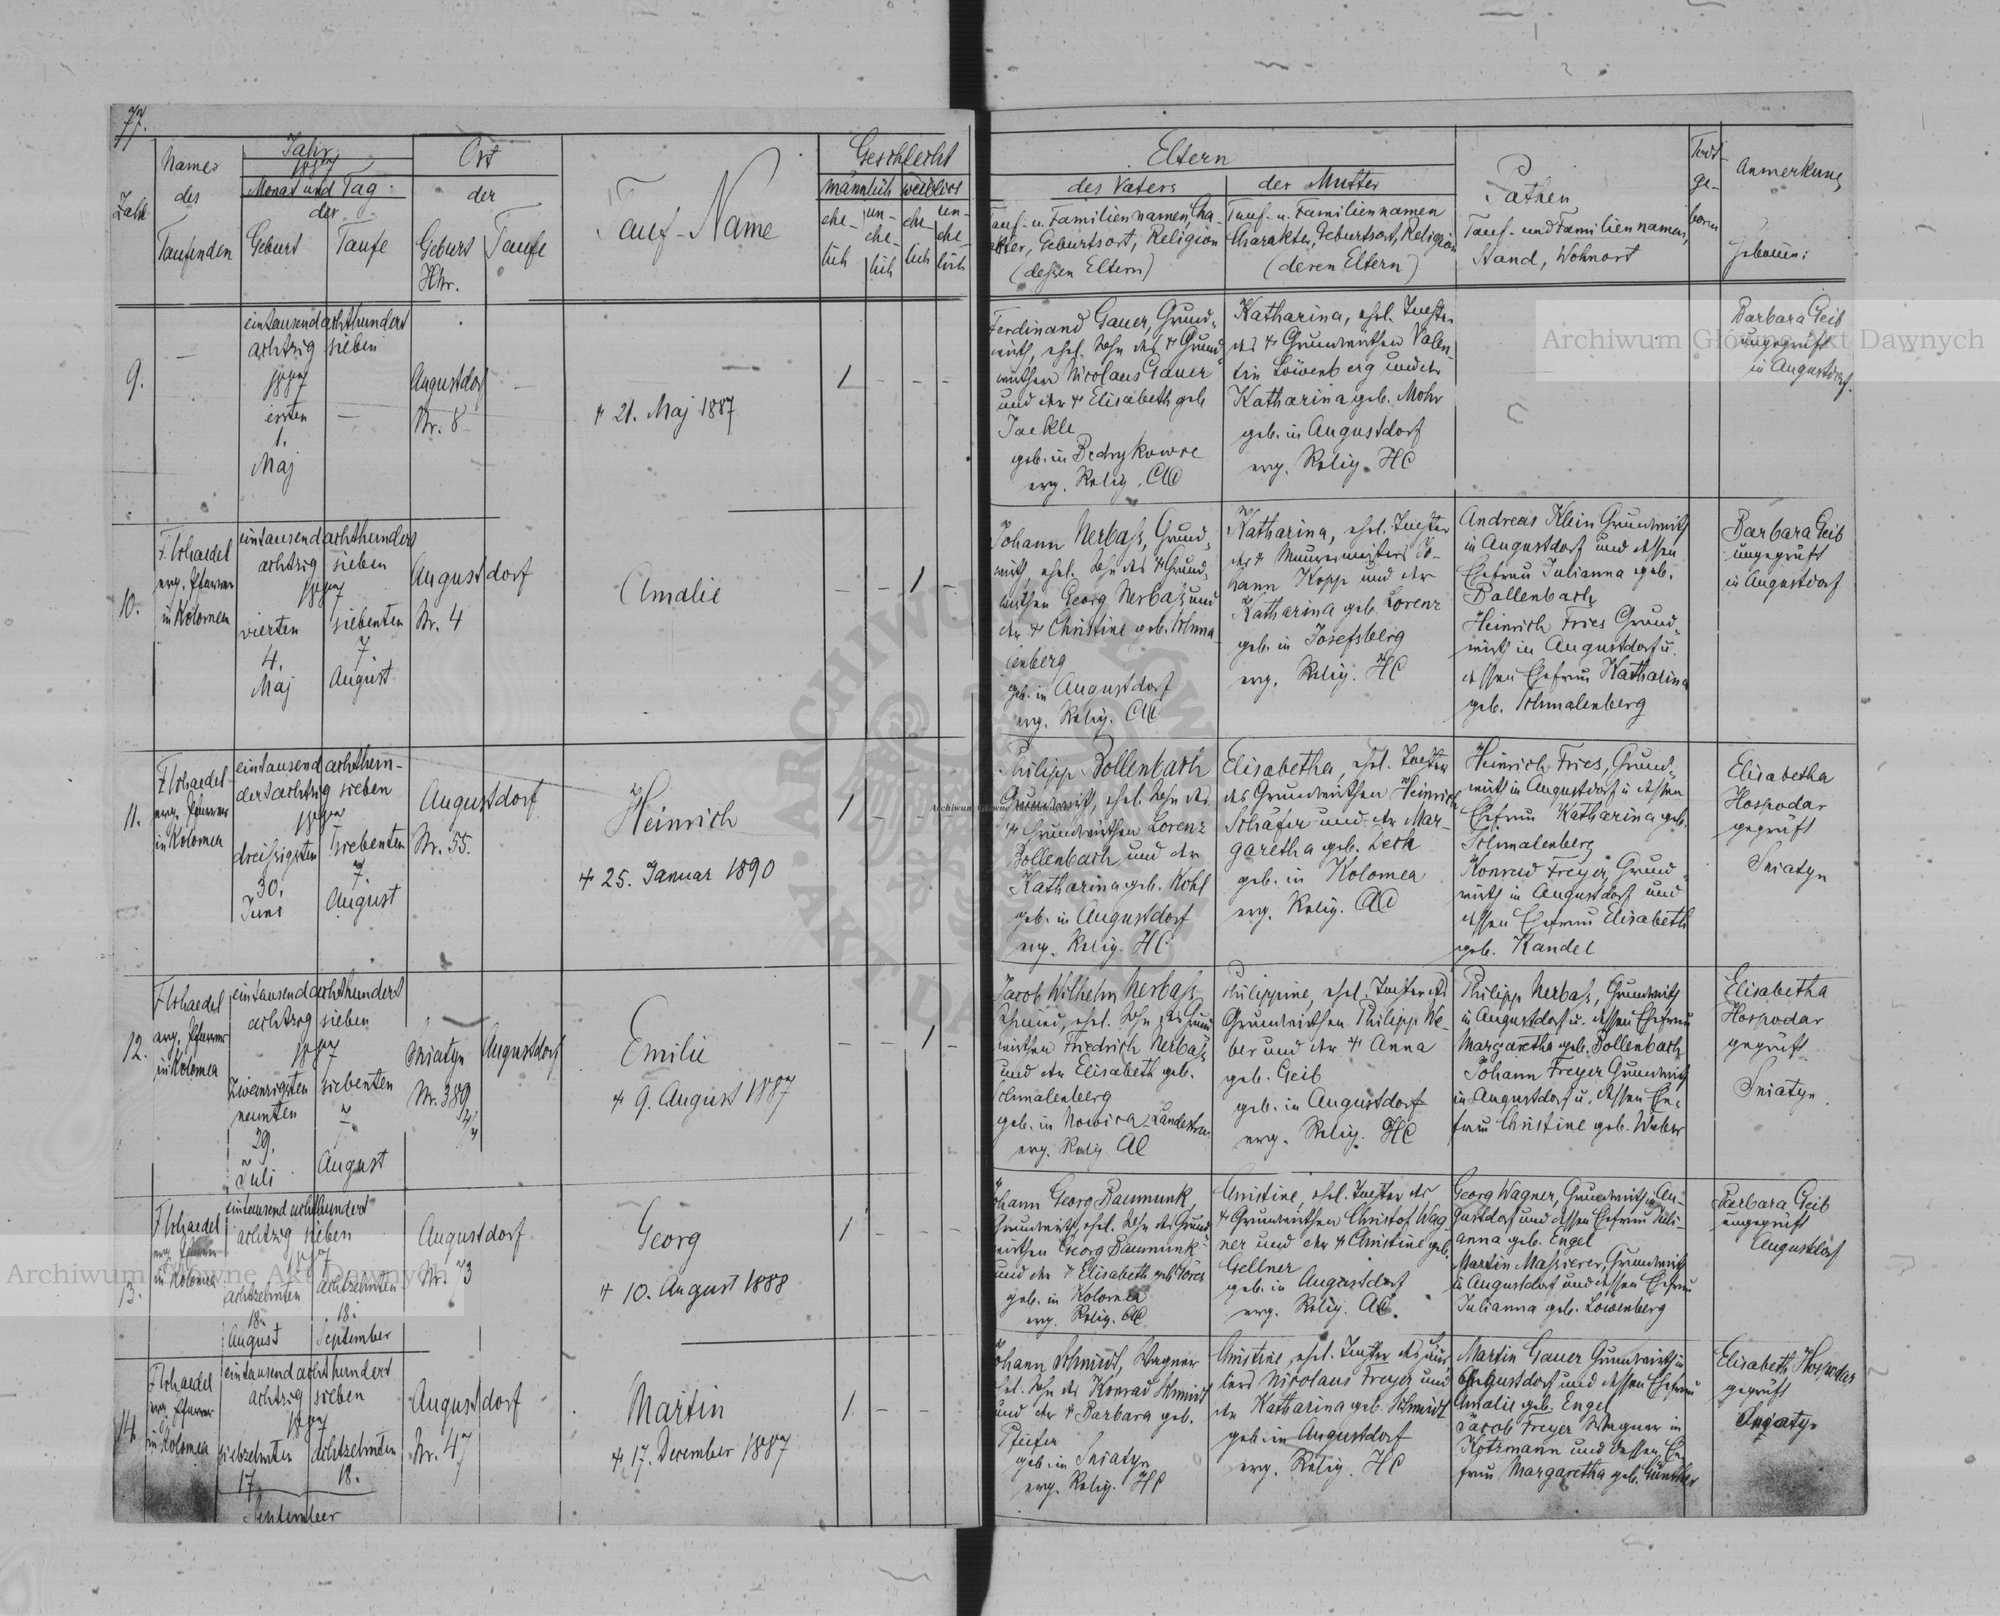 77.
Zahl
Name
des
Taufenden
Jahr
1887
Monat und Tag
der
Geburt
Taufe
Ort
der
Geburt
Hnr.
Taufe
Tauf-Name
Geschlecht
männlich
weiblich
ehe-
lich
un-
ehe-
lich
ehe-
lich
un-
ehe-
lich
Eltern
des Vaters
Tauf- u. Familiennamen, Cha-
rakter, Geburtsort, Religion
(dessen Eltern)
der Mutter
Tauf- u. Familiennamen
Charakter, Geburtsort, Religion
(deren Eltern)
Pathen
Tauf- und Familiennamen,
Stand, Wohnort
Todt-
ge-
boren
Anmerkung
Hebamme:
9.
—
eintausendachthundert
achtzig sieben
1887
ersten
1.
Maj
—
Augustdorf
Nr. 8
—
† 21. Maj 1887
1 - - -
Ferdinand Gauer, Grund-
wirth, ehel. Sohn des † Grund-
wirthen Nicolaus Gauer
und der † Elisabeth geb.
Jaekle
geb. in Bedrykowce
evg. Relig. AC
Katharina, ehel. Tochter
des † Grundwirthen Valen-
tin Löwenberg und der
Katharina geb. Mohr
geb. in Augustdorf
evg. Relig. HC
Barbara Geib
ungeprüft
in Augustdorf.
10.
F. Schaedel
evg. Pfarrer
in Kolomea
eintausendachthundert
achtzig sieben
1887
vierten
4.
Maj
siebenten
7.
August
Augustdorf
Nr. 4
Amalie
- - 1 -
Johann Nerbass, Grund-
wirth ehel. Sohn des † Grund-
wirthen Georg Nerbass und
der † Christine geb. Schma-
lenberg
geb. in Augustdorf
evg. Relig. AC
Katharina, ehel. Tochter
des † Maurermeisters Jo-
hann Kopp und der
Katharina geb. Lorenz
geb. in Josefsberg
evg. Relig. HC
Andreas Klein Grundwirth
in Augustdorf und dessen
Ehefrau Julianna geb.
Bollenbach
Heinrich Fries Grund-
wirth in Augustdorf u.
dessen Ehefrau Katharina
geb. Schmalenberg
Barbara Geib
ungeprüft
in Augustdorf
11.
F. Schaedel
evg. Pfarrer
in Kolomea
eintausend achthun-
dertachtzig sieben
1887
dreissigsten
30.
Juni
siebenten
7.
August
Augustdorf
Nr. 55.
Heinrich
† 25. Januar 1890
1 - - -
Philipp Bollenbach
Grundwirth, ehel. Sohn des
† Grundwirthen Lorenz
Bollenbach und der
Katharina geb. Kohl
geb. in Augustdorf
evg. Relig. HC
Elisabetha, ehel. Tochter
des Grundwirthen Heinrich
Schäfer und der Mar-
garetha geb. Deck
geb. in Kolomea
evg. Relig. AC
Heinrich Fries, Grund-
wirth in Augustdorf u dessen
Ehefrau Katharina geb.
Schmalenberg
Konrad Freyer, Grund-
wirth in Augustdorf und
dessen Ehefrau Elisabeth
geb. Kandel
Elisabetha
Hospodar
geprüft
Sniatyn
12.
F. Schaedel
evg. Pfarrer
in Kolomea
eintausendachthundert
achtzig sieben
1887
zwanzigsten
neunten
29.
Juli
siebenten
7
August
Sniatyn
Nr. 389
Augustdorf
Emilie
† 9. August 1887
- - 1 -
Jacob Wilhelm Nerbass
Schmied, ehel. Sohn des Grund-
wirthen Friedrich Nerbass
und der Elisabeth geb.
Schmalenberg
geb. in Nowica, Landestreu
evg. Relig AC
Philippine, ehel. Tochter des
Grundwirthen Philipp We-
ber und der † Anna
geb. Geib
geb. in Augustdorf
evg. Relig. HC
Philipp Nerbass, Grundwirth
in Augustdorf u. dessen Ehefrau
Margaretha geb. Bollenbach
Johann Freyer Grundwirth
in Augustdorf u. dessen Ehe-
frau Christine geb. Weber
Elisabetha
Hospodar
geprüft
Sniatyn.
13.
F. Schaedel
evg. Pfarrer
in Kolomea
eintausend achthundert
achtzig sieben
1887
achtzehnten
18.
August
achtzehnten
18.
September
Augustdorf
Nr. 73
Georg
† 10. August 1888
1 - - -
Johann Georg Baumunk,
Grundwirth, ehel. Sohn des Grund-
wirthen Georg Baumunk
und der † Elisabeth geb.
geb. in Kolomea
evg. Relig. AC
Christine, ehel. Tochter des
† Grundwirthen Christof Wag-
ner und der † Christine geb.
Gellner
geb. in Augustdorf
evg. Relig. AC.
Georg Wagner, Grundwirth in Au-
gustdorf und dessen Ehefrau Juli-
anna geb. Engel
Martin Massierer, Grundwirth
in Augustdorf und dessen Ehefrau
Julianna geb. Löwenberg
Barbara Geib
ungeprüft
Augustdorf
14.
F. Schaedel
evg. Pfarrer
in Kolomea
eintausend achthundert
achtzig sieben
1887
siebzehnten
17
achtzehnten
18.
September
Augustdorf
Nr. 47
Martin
† 17. December 1887
1 - -
Johann Schmidt, Wagner
ehel. Sohn des Konrad Schmidt
und der † Barbara geb.
Pfeifer
geb. in Sniatyn
evg. Relig. HC
Christine, ehel. Tochter des
Nicolaus Freyer und
der Katharina geb. Schmidt
geb. in Augustdorf
evg. Relig. HC
Martin Gauer Grundwirth in
Augustdorf und dessen Ehefrau
Amalie geb. Engel
Jacob Freyer Wagner in
Kotzmann und dessen Ehe-
frau Margaretha geb. Günther
Elisabeth Hospodar
geprüft
Sniatyn
Archiwum Główne Akt Dawnych
Archiwum Główne Akt Dawnych